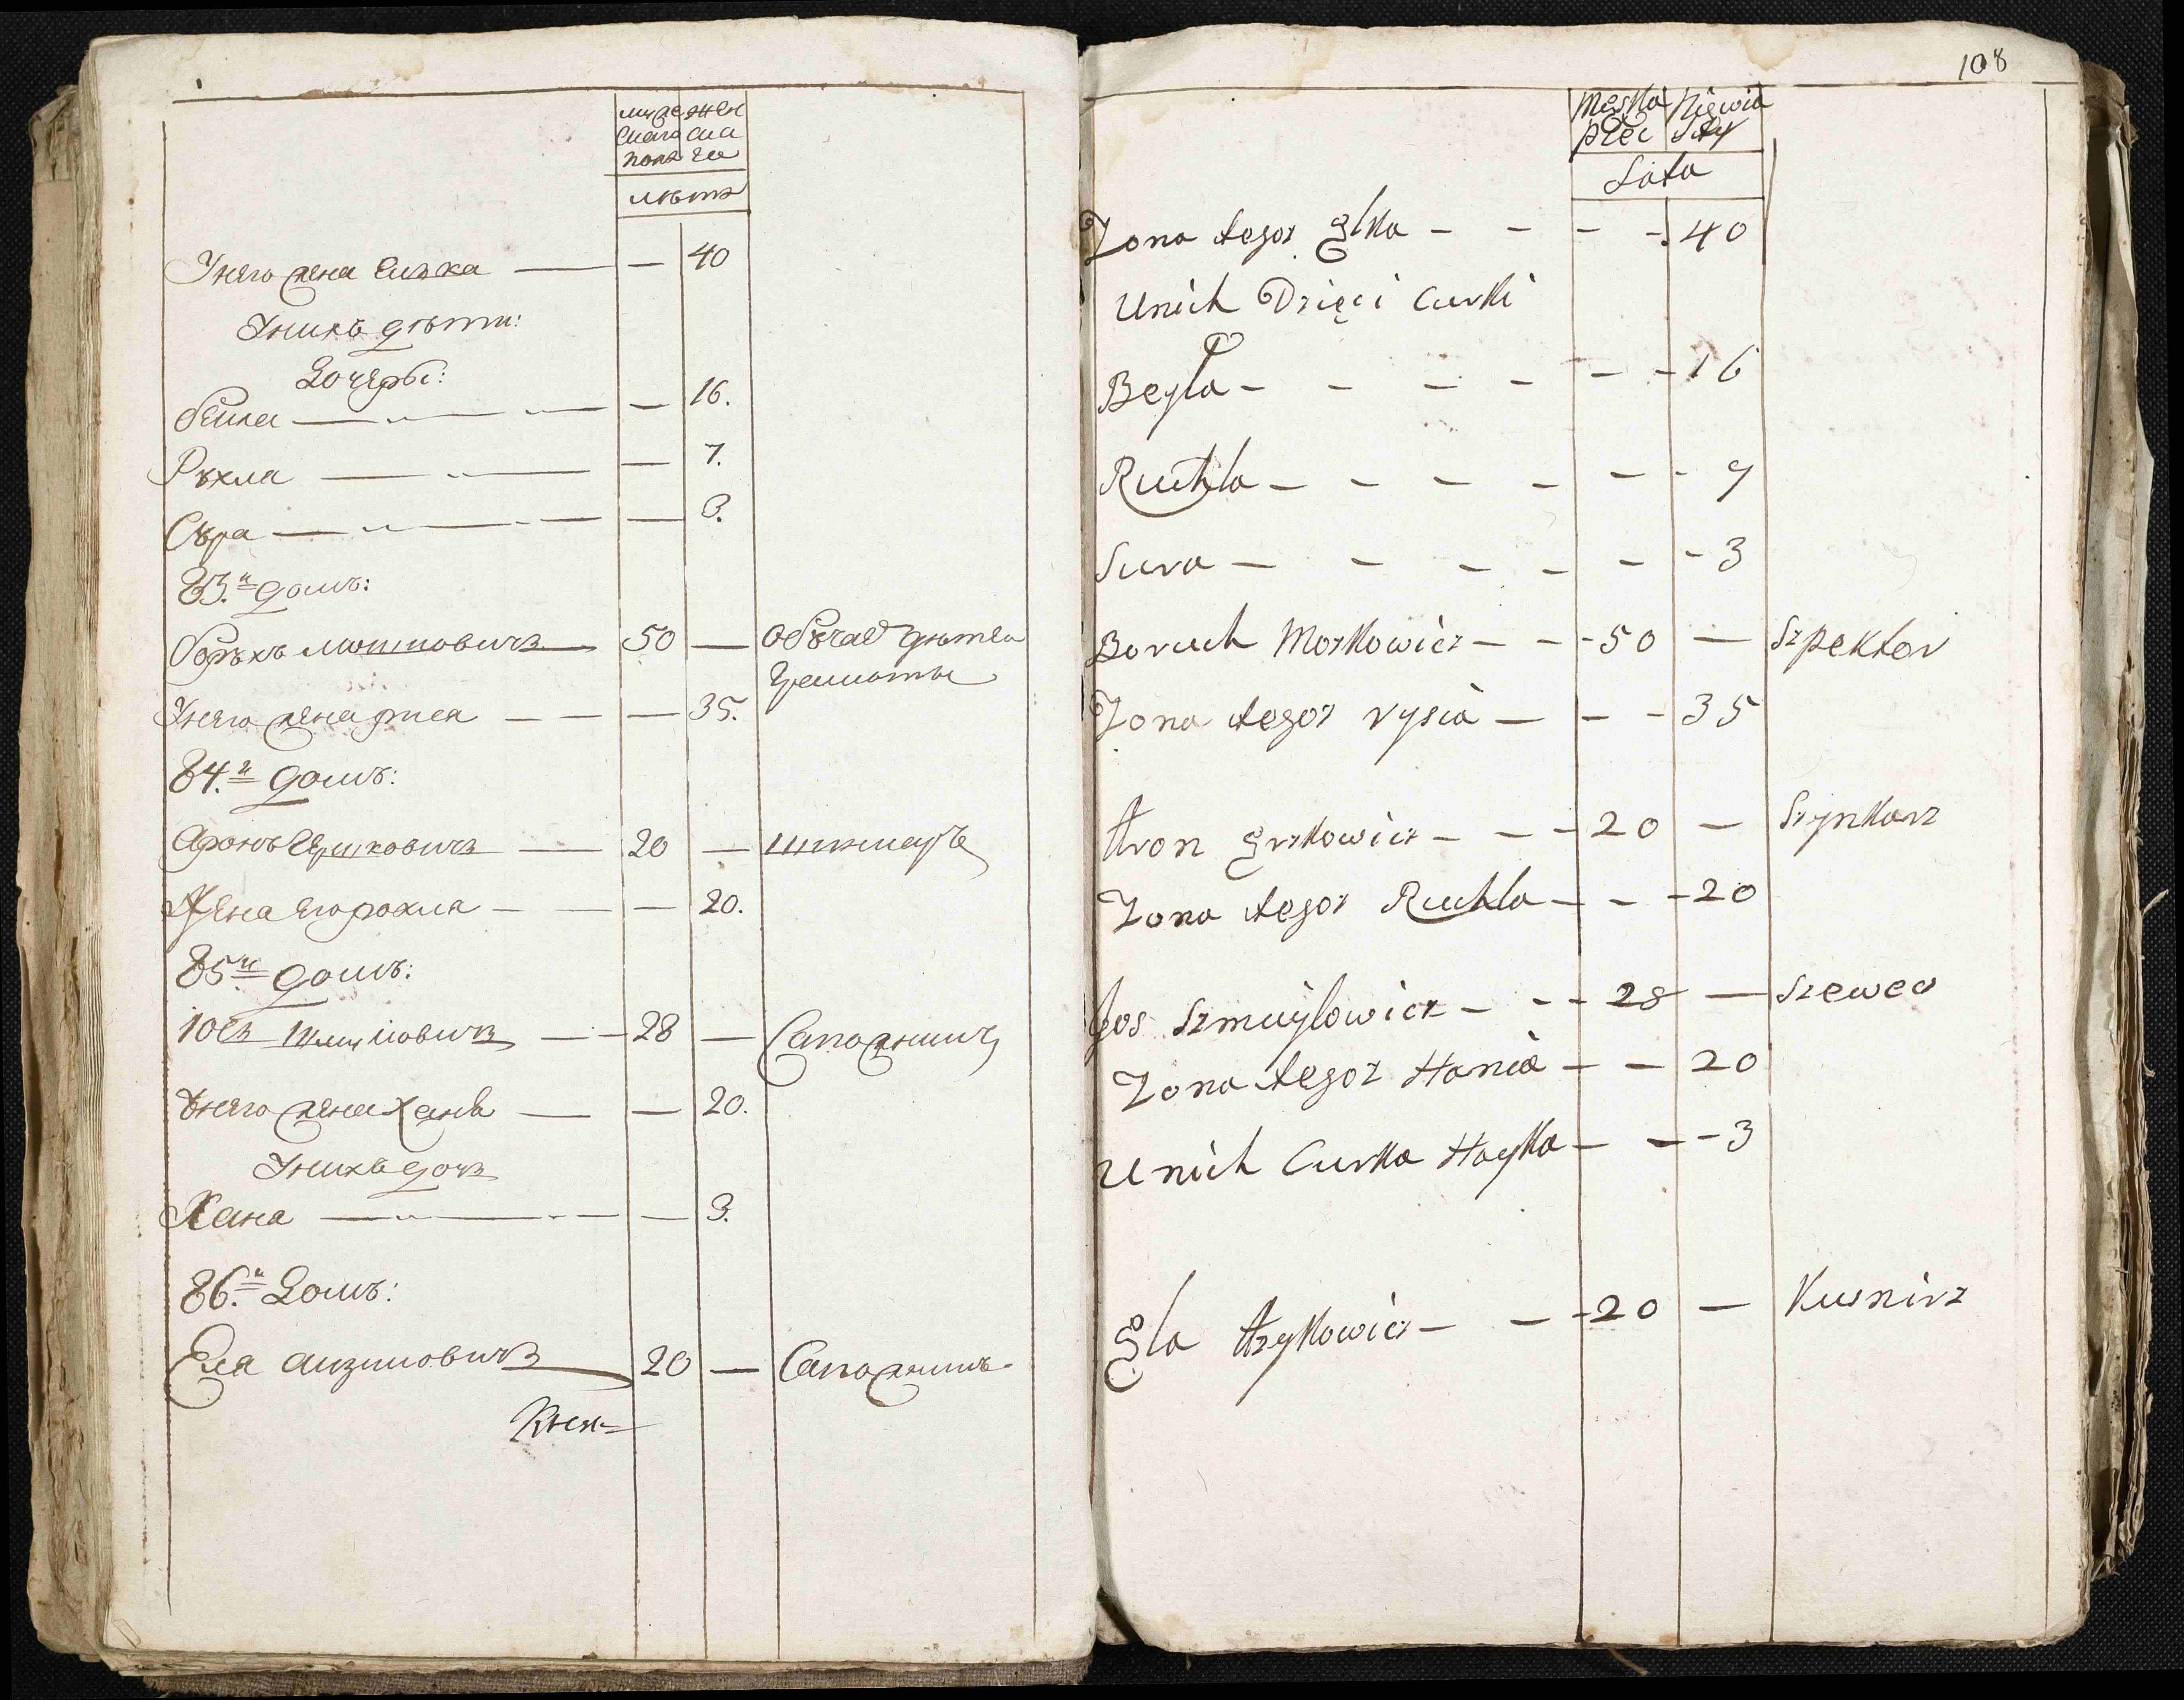 муже жен
скаго ска
полꙋ го
лѣтъ
Унего жена Елька — — 40
Унихъ дѣти:
Дочеры:
Бейла — — — 16.
Рухла — — — 7.
Сура — — — 3.
83.й домъ:
Борухъ Мошковичъ — 50 — обучает дѣтей
Грамоты
Унего жена рися — — — 35.
84.й домъ:
Аронъ Ершковичъ — 20 — шинкаръ
Жена его рохля — — — 20.
85й домъ:
Іосъ Шмуйловичъ — — 28 — Сапожникъ
Унего жена Ханя — — 20.
Унихъ дочъ
Хайка — — — 3.
86.й Домъ:
Еля Айзиковичъ 20 — Сапожникъ
108
Męska Niewia
płec sty
Lata
Zona tegoz Elka - - - - 40
Unich Dzięci Curki
Beyla - - - - - - 16
Ruchla - - - - - - 7
Sura - - - - - - 3
Boruch Moskowicz - - - 50 — Szpektor
Zona tegoz rysia - - - 35
Aron Erzkowicz - - - 20 — Szynkarz
Zona tegoz Ruchla - - - 20
Jos Szmuylowicz - - - 28 — Szewec
Zona tegoz Hania - - 20
Unich Curka Hayka - - - 3
Ela Azykowicz - - - 20 — Kusnirz